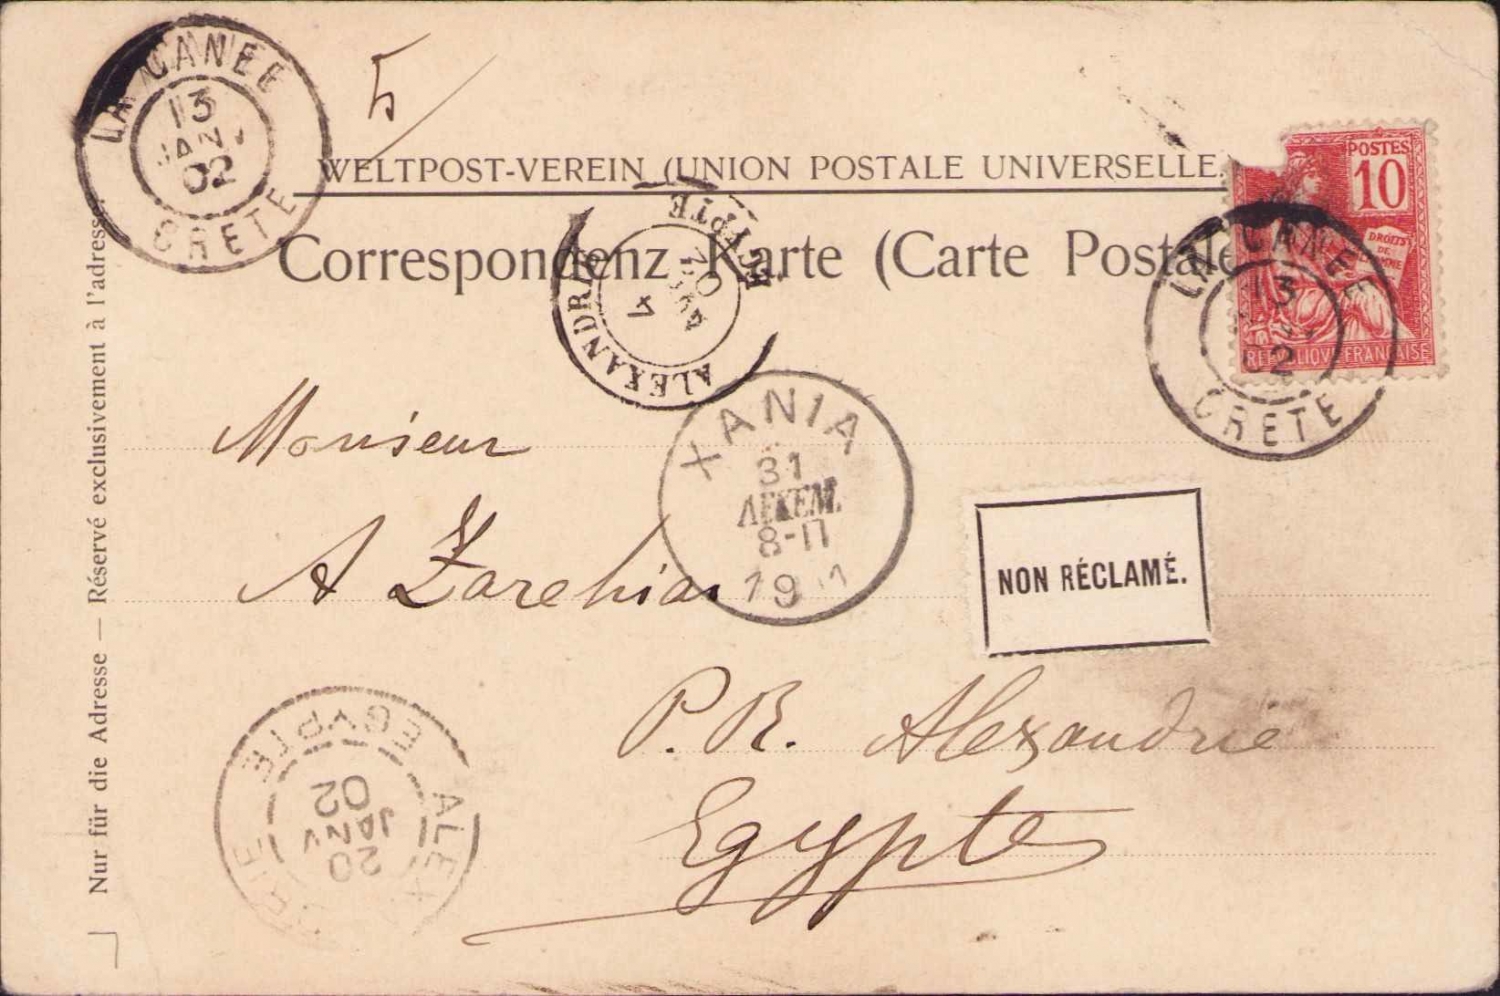 LA CANEE
13
JANV
02
CRETE
WELTPOST-VEREIN (UNION POSTALE UNIVERSELLE.
Correspondenz Karte (Carte Postale
POSTES
10
DROITS
DE
REPUBLIQUE FRANÇAISE
LA CANEE
13
02
CRETE
ALEXANDRIE
EGYPTE
XANIA
31
ΔΕΚΕΜ.
8-Π
Monsieur
A Zarehian
NON RÉCLAMÉ.
P. R. Alexandrie
Egypte
EGYPTE
20
JANV
02
Nur für die Adresse — Réservé exclusivement à l'adresse.